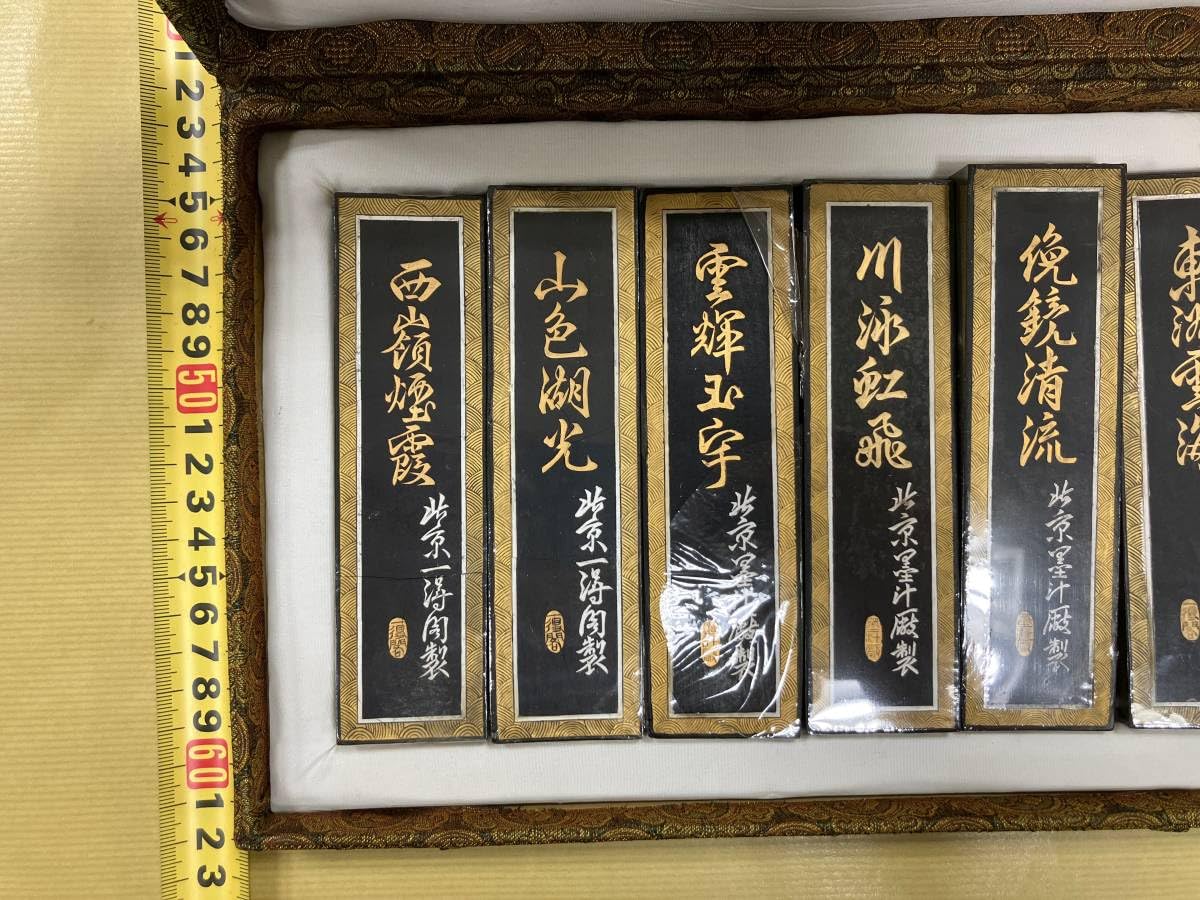 西嶺煙霞
北京一得阁製
一得閣
山色湖光
北京一得阁製
一得閣
雲輝玉宇
北京墨汁廠製
川泳虹飛
北京墨汁廠製
俛鏡清流
北京墨汁廠製
1
2
3
4
5
6
7
8
9
50
1
2
3
4
5
6
7
8
9
60
1
2
3